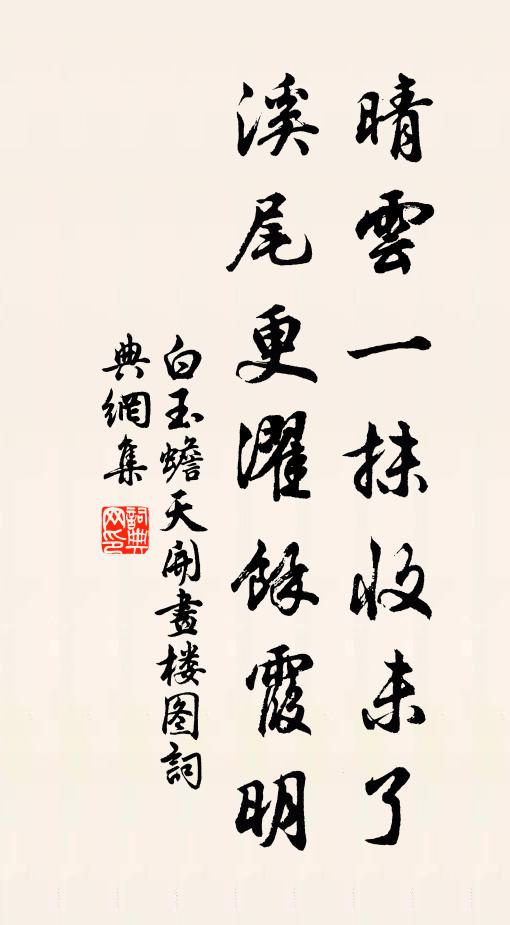 晴雲一抹收未了
溪尾更濯餘霞明
白玉蟾天開畫楼图詞
典網集
詞典
网印